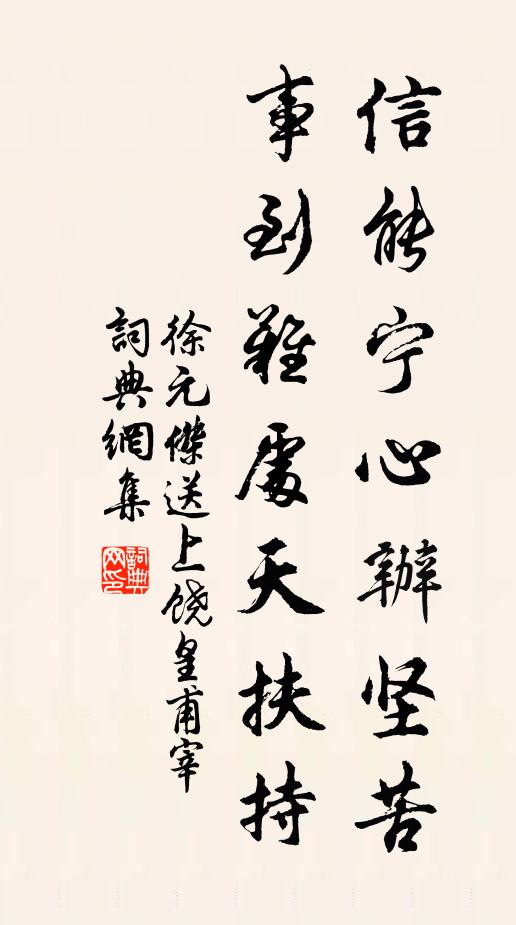 信能宁心辦坚苦
事到難處天扶持
徐元傑送上饶皇甫宰
詞典網集
詞典网印